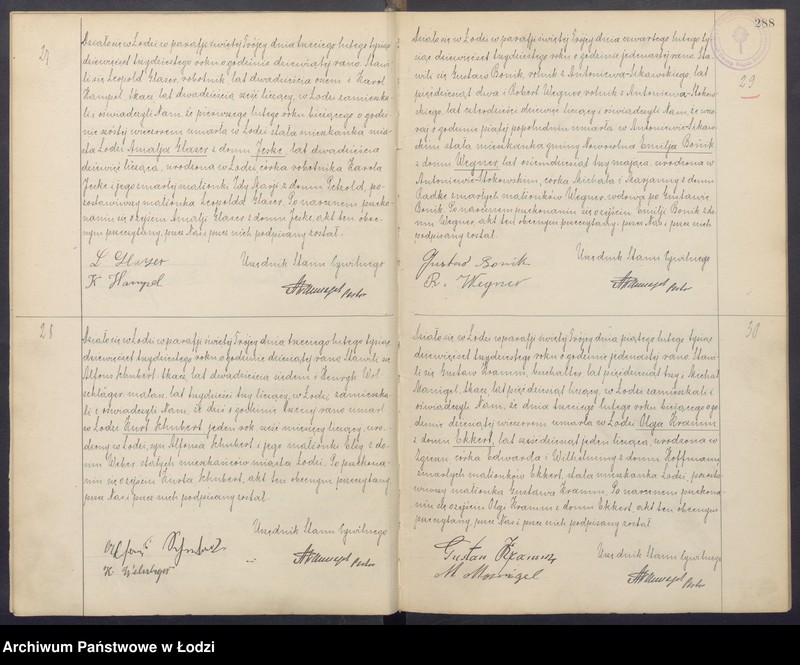 27
Działo się w Łodzi w parafji świętej Trójcy dnia trzeciego lutego tysiąc
dziewięćset trzydziestego roku o godzinie dziewiątej rano. Stawi-
li się Leopold Glaser, robotnik, lat dwadzieścia osiem i Karol
Hampel, tkacz, lat dwadzieścia sześć liczący, w Łodzi zamieszka-
li i oświadczyli Nam, że pierwszego lutego roku bieżącego o godzi-
nie szóstej wieczorem umarła w Łodzi stała mieszkanka mia-
sta Łodzi Amalja Glaser z domu Jeske, lat dwadzieścia
dziewięć licząca, urodzona w Łodzi, córka robotnika Karola
Jeske i jego zmarłej małżonki Idy Marji z domu Petzold, po-
zostawiwszy małżonka Leopolda Glaser. Po naocznem przeko-
naniu się o zejściu Amalji Glaser z domu Jeske, akt ten obec-
nym przeczytany, przez Nas i przez nich podpisany został.
L. Glaser Urzędnik Stanu Cywilnego
K. Hampel Pastor
28
Działo się w Łodzi w parafji świętej Trójcy dnia trzeciego lutego tysiąc
dziewięćset trzydziestego roku o godzinie dziesiątej rano. Stawili się
Alfons Schubert, tkacz, lat dwadzieścia siedem i Henryk Wol
schläger, malarz, lat trzydzieści trzy liczący, w Łodzi zamieszka-
li i oświadczyli Nam, że dziś o godzinie trzeciej rano umarł
w Łodzi Kurt Schubert, jeden rok sześć miesięcy liczący, uro-
dzony w Łodzi, syn Alfonsa Schubert i jego małżonki Elzy z do-
mu Weber, stałych mieszkańców miasta Łodzi. Po przekona-
niu się o zejściu Kurta Schubert, akt ten obecnym przeczytany
przez Nas i przez nich podpisany został.
Urzędnik Stanu Cywilnego
Alfons Schubert
Pastor
288
29
Działo się w Łodzi w parafji świętej Trójcy dnia czwartego lutego ty-
siąc dziewięćset trzydziestego roku o godzinie jedenastej rano. Sta-
wili się Gustaw Bonik, rolnik z Antoniewa-Sikawskiego, lat
pięćdziesiąt dwa i Robert Wegner, rolnik z Antoniewa-Stokow-
skiego, lat czterdzieści dziewięć liczący i oświadczyli Nam, że wczo-
raj o godzinie piątej popołudniu umarła w Antoniewie-Sikaw-
skim stała mieszkanka gminy Nowosolna Emilja Bonik
z domu Wegner, lat osiemdziesiąt trzy mająca, urodzona w
Antoniewie-Stokowskim, córka Michała i Zuzanny z domu
Radke zmarłych małżonków Wegner, wdowa po Gustawie
Bonik. Po naocznem przekonaniu się o zejściu Emilji Bonik z do-
mu Wegner, akt ten obecnym przeczytany, przez Nas i przez nich
podpisany został.
Gustav Bonik Urzędnik Stanu Cywilnego
R. Wegner Pastor
30
Działo się w Łodzi w parafji świętej Trójcy dnia piątego lutego tysiąc
dziewięćset trzydziestego roku o godzinie jedenastej rano. Stawi-
li się Gustaw Kramm, buchalter, lat pięćdziesiąt trzy i Michał
Manigel, tkacz, lat pięćdziesiąt liczący, w Łodzi zamieszkali i
oświadczyli Nam, że dnia trzeciego lutego roku bieżącego o go-
dzinie dziesiątej wieczorem umarła w Łodzi Olga Kramm
z domu Ekkert, lat sześćdziesiąt jeden licząca, urodzona w
Zgierzu, córka Edwarda i Wilhelminy z domu Hoffmann,
zmarłych małżonków Ekkert, stała mieszkanka Łodzi, pozosta-
wiwszy małżonka Gustawa Kramm. Po naocznem przekona-
niu się o zejściu Olgi Kramm z domu Ekkert, akt ten obecnym
przeczytany, przez Nas i przez nich podpisany został.
Gustav Kramm Urzędnik Stanu Cywilnego
M. Manigel Pastor
Archiwum Państwowe w Łodzi